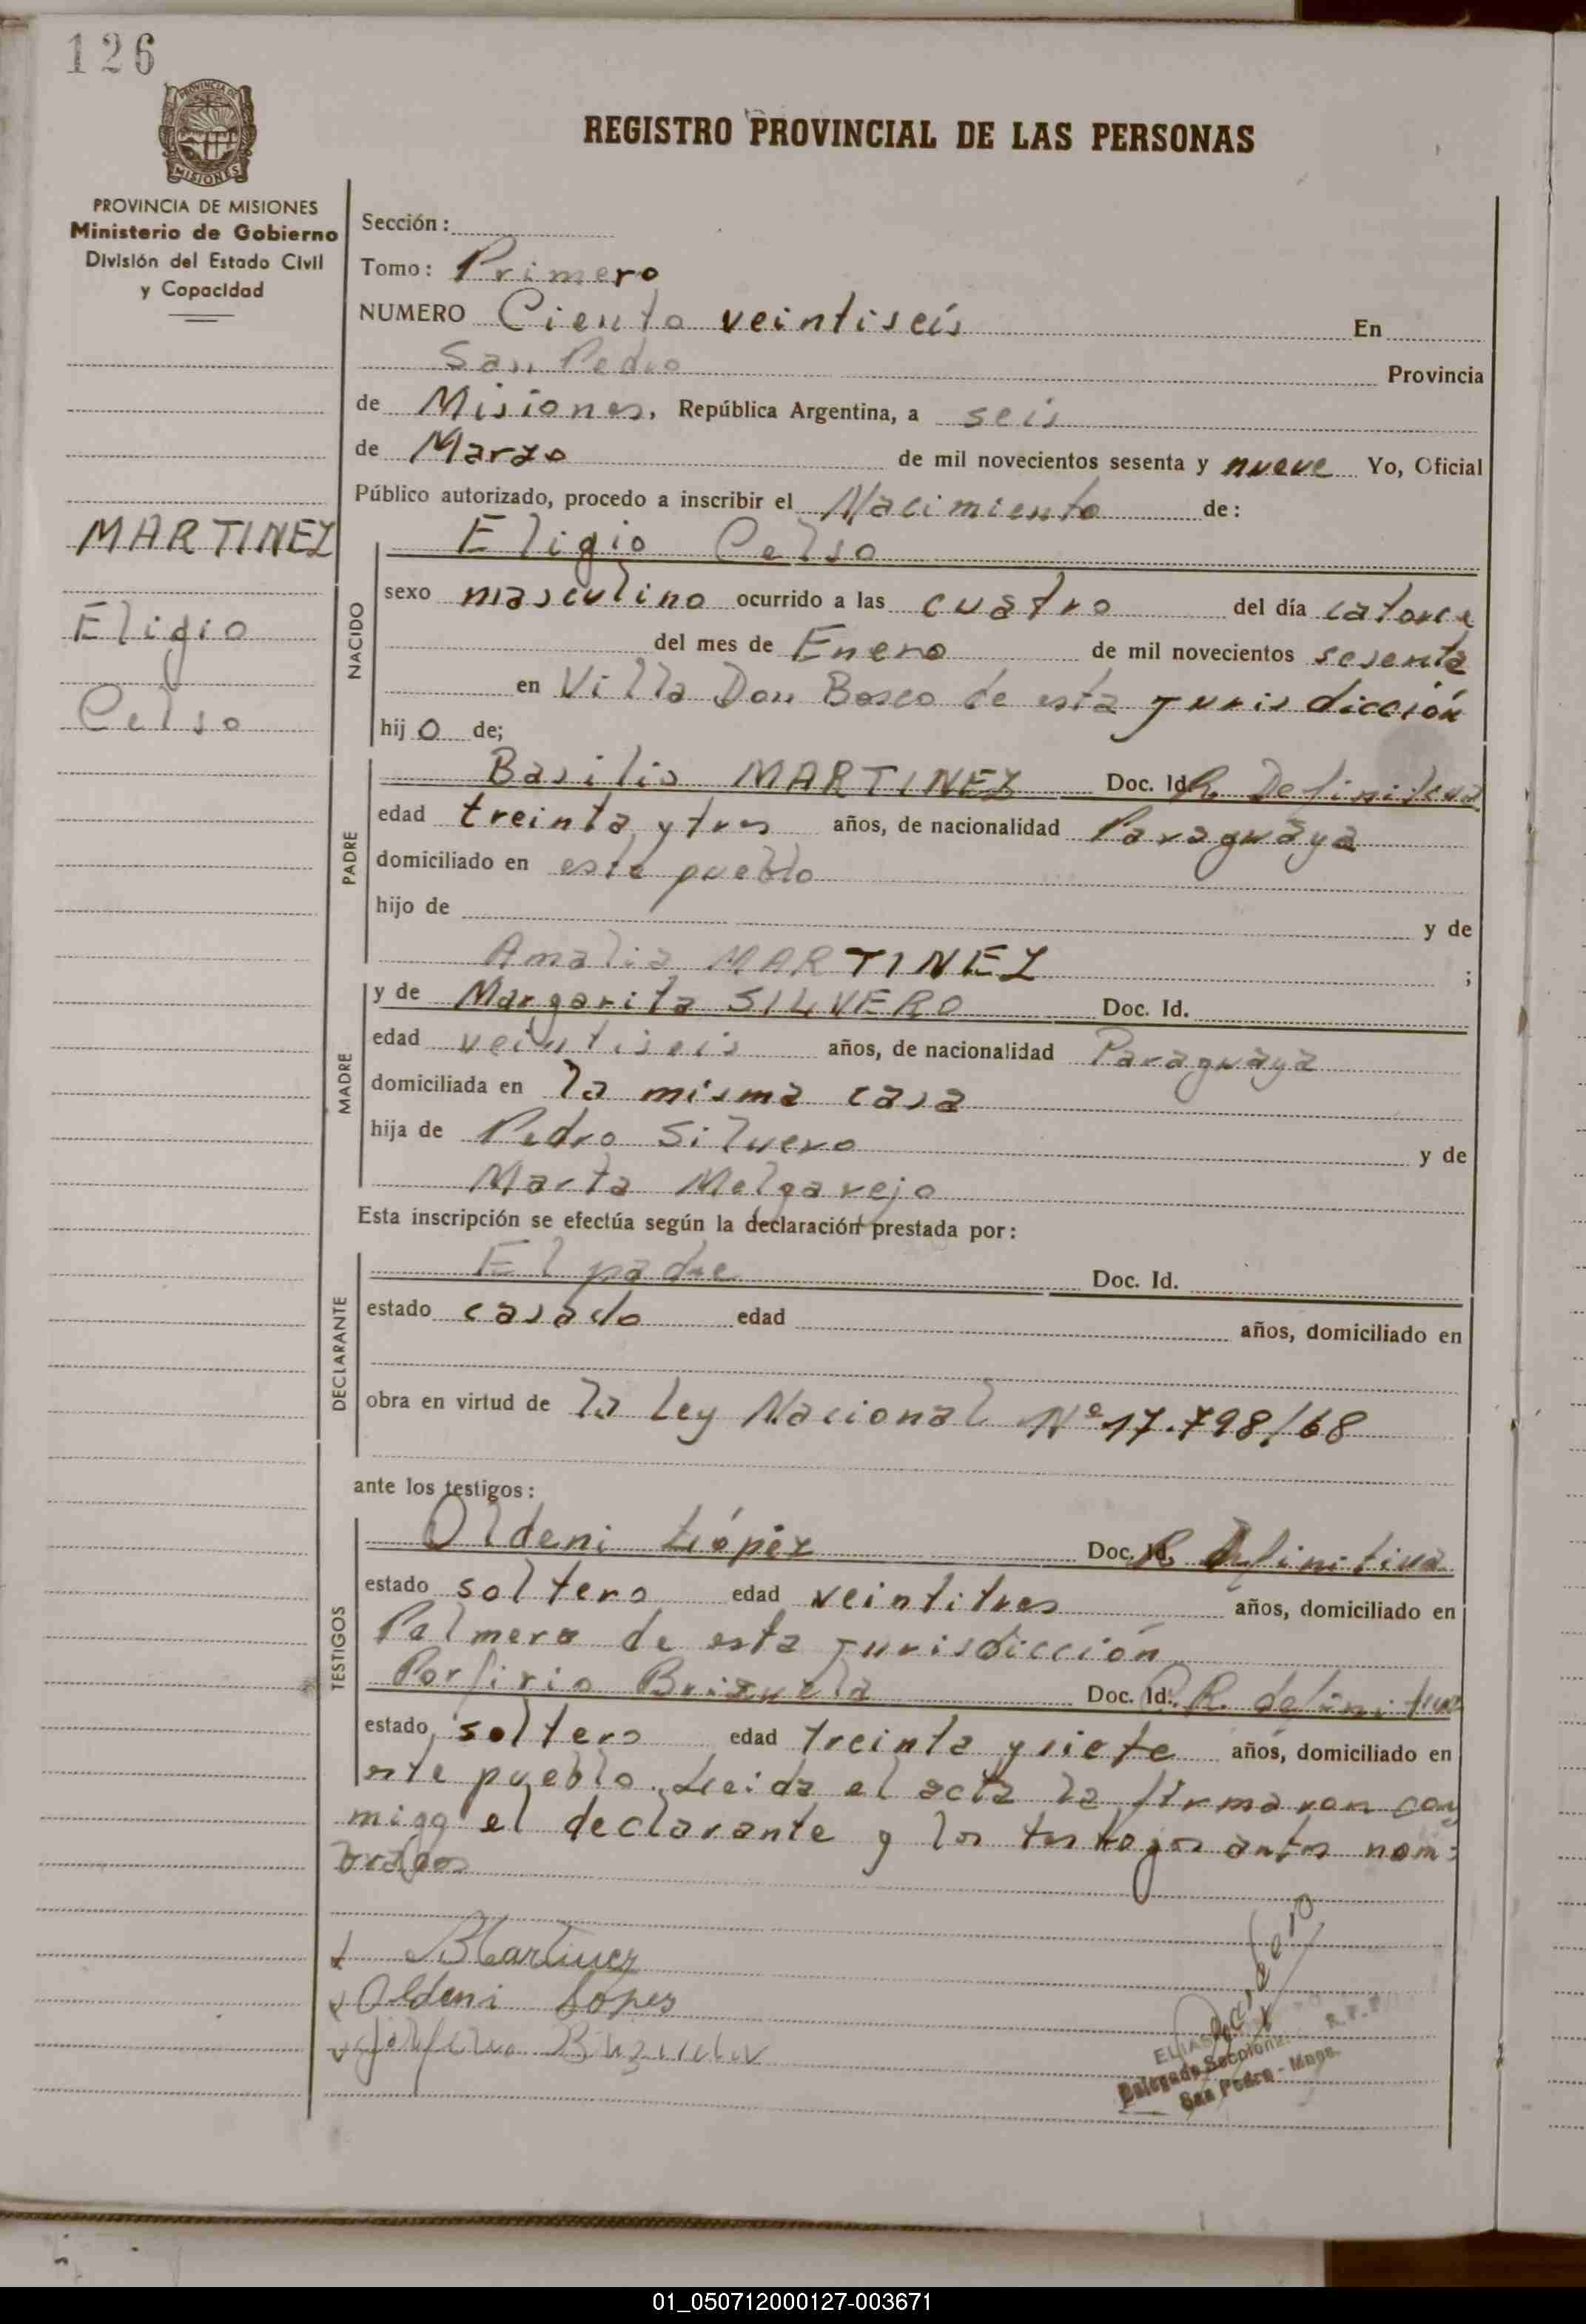 126
PROVINCIA DE
MISIONES
REGISTRO PROVINCIAL DE LAS PERSONAS
PROVINCIA DE MISIONES
Ministerio de Gobierno
División del Estado Civil
y Capacidad
MARTINEZ
Eligio
Celso
Sección:
Tomo: Primero
NUMERO Ciento veintiseís En
San Pedro Provincia
de Misiones, República Argentina, a seis
de Marzo de mil novecientos sesenta y nueve Yo, Oficial
Público autorizado, procedo a inscribir el Nacimiento de:
Eligio Celso
NACIDO
sexo masculino ocurrido a las cuatro del día catorce
del mes de Enero de mil novecientos sesenta
en Villa Don Bosco de esta jurisdicción
hijo de;
PADRE
Basilio MARTINEZ Doc. Id. R. Definitiva
edad treinta y tres años, de nacionalidad Paraguaya
domiciliado en este pueblo
hijo de y de
Amalia MARTINEZ ;
MADRE
y de Margarita SILVERO Doc. Id.
edad veintiseis años, de nacionalidad Paraguaya
domiciliada en la misma casa
hija de Pedro Silvero y de
Marta Melgarejo
Esta inscripción se efectúa según la declaración prestada por:
DECLARANTE
El padre Doc. Id.
estado casado edad años, domiciliado en
obra en virtud de la Ley Nacional Nº 17.798/68
ante los testigos:
TESTIGOS
Oldeni López Doc. Id. R. Definitiva
estado soltero edad veintitres años, domiciliado en
Palmera de esta jurisdicción
Porfirio Brizuela Doc. Id. R. definitiva
estado soltero edad treinta y siete años, domiciliado en
este pueblo. Leida el acta la firmaron con
migo el declarante y los testigos antes nom=
brados
BMartinez
Oldeni Lopes
Porfirio Brizuela
ELIAS R.P.P.
Delegado Seccional
San Pedro - Mnes.
01_050712000127-003671